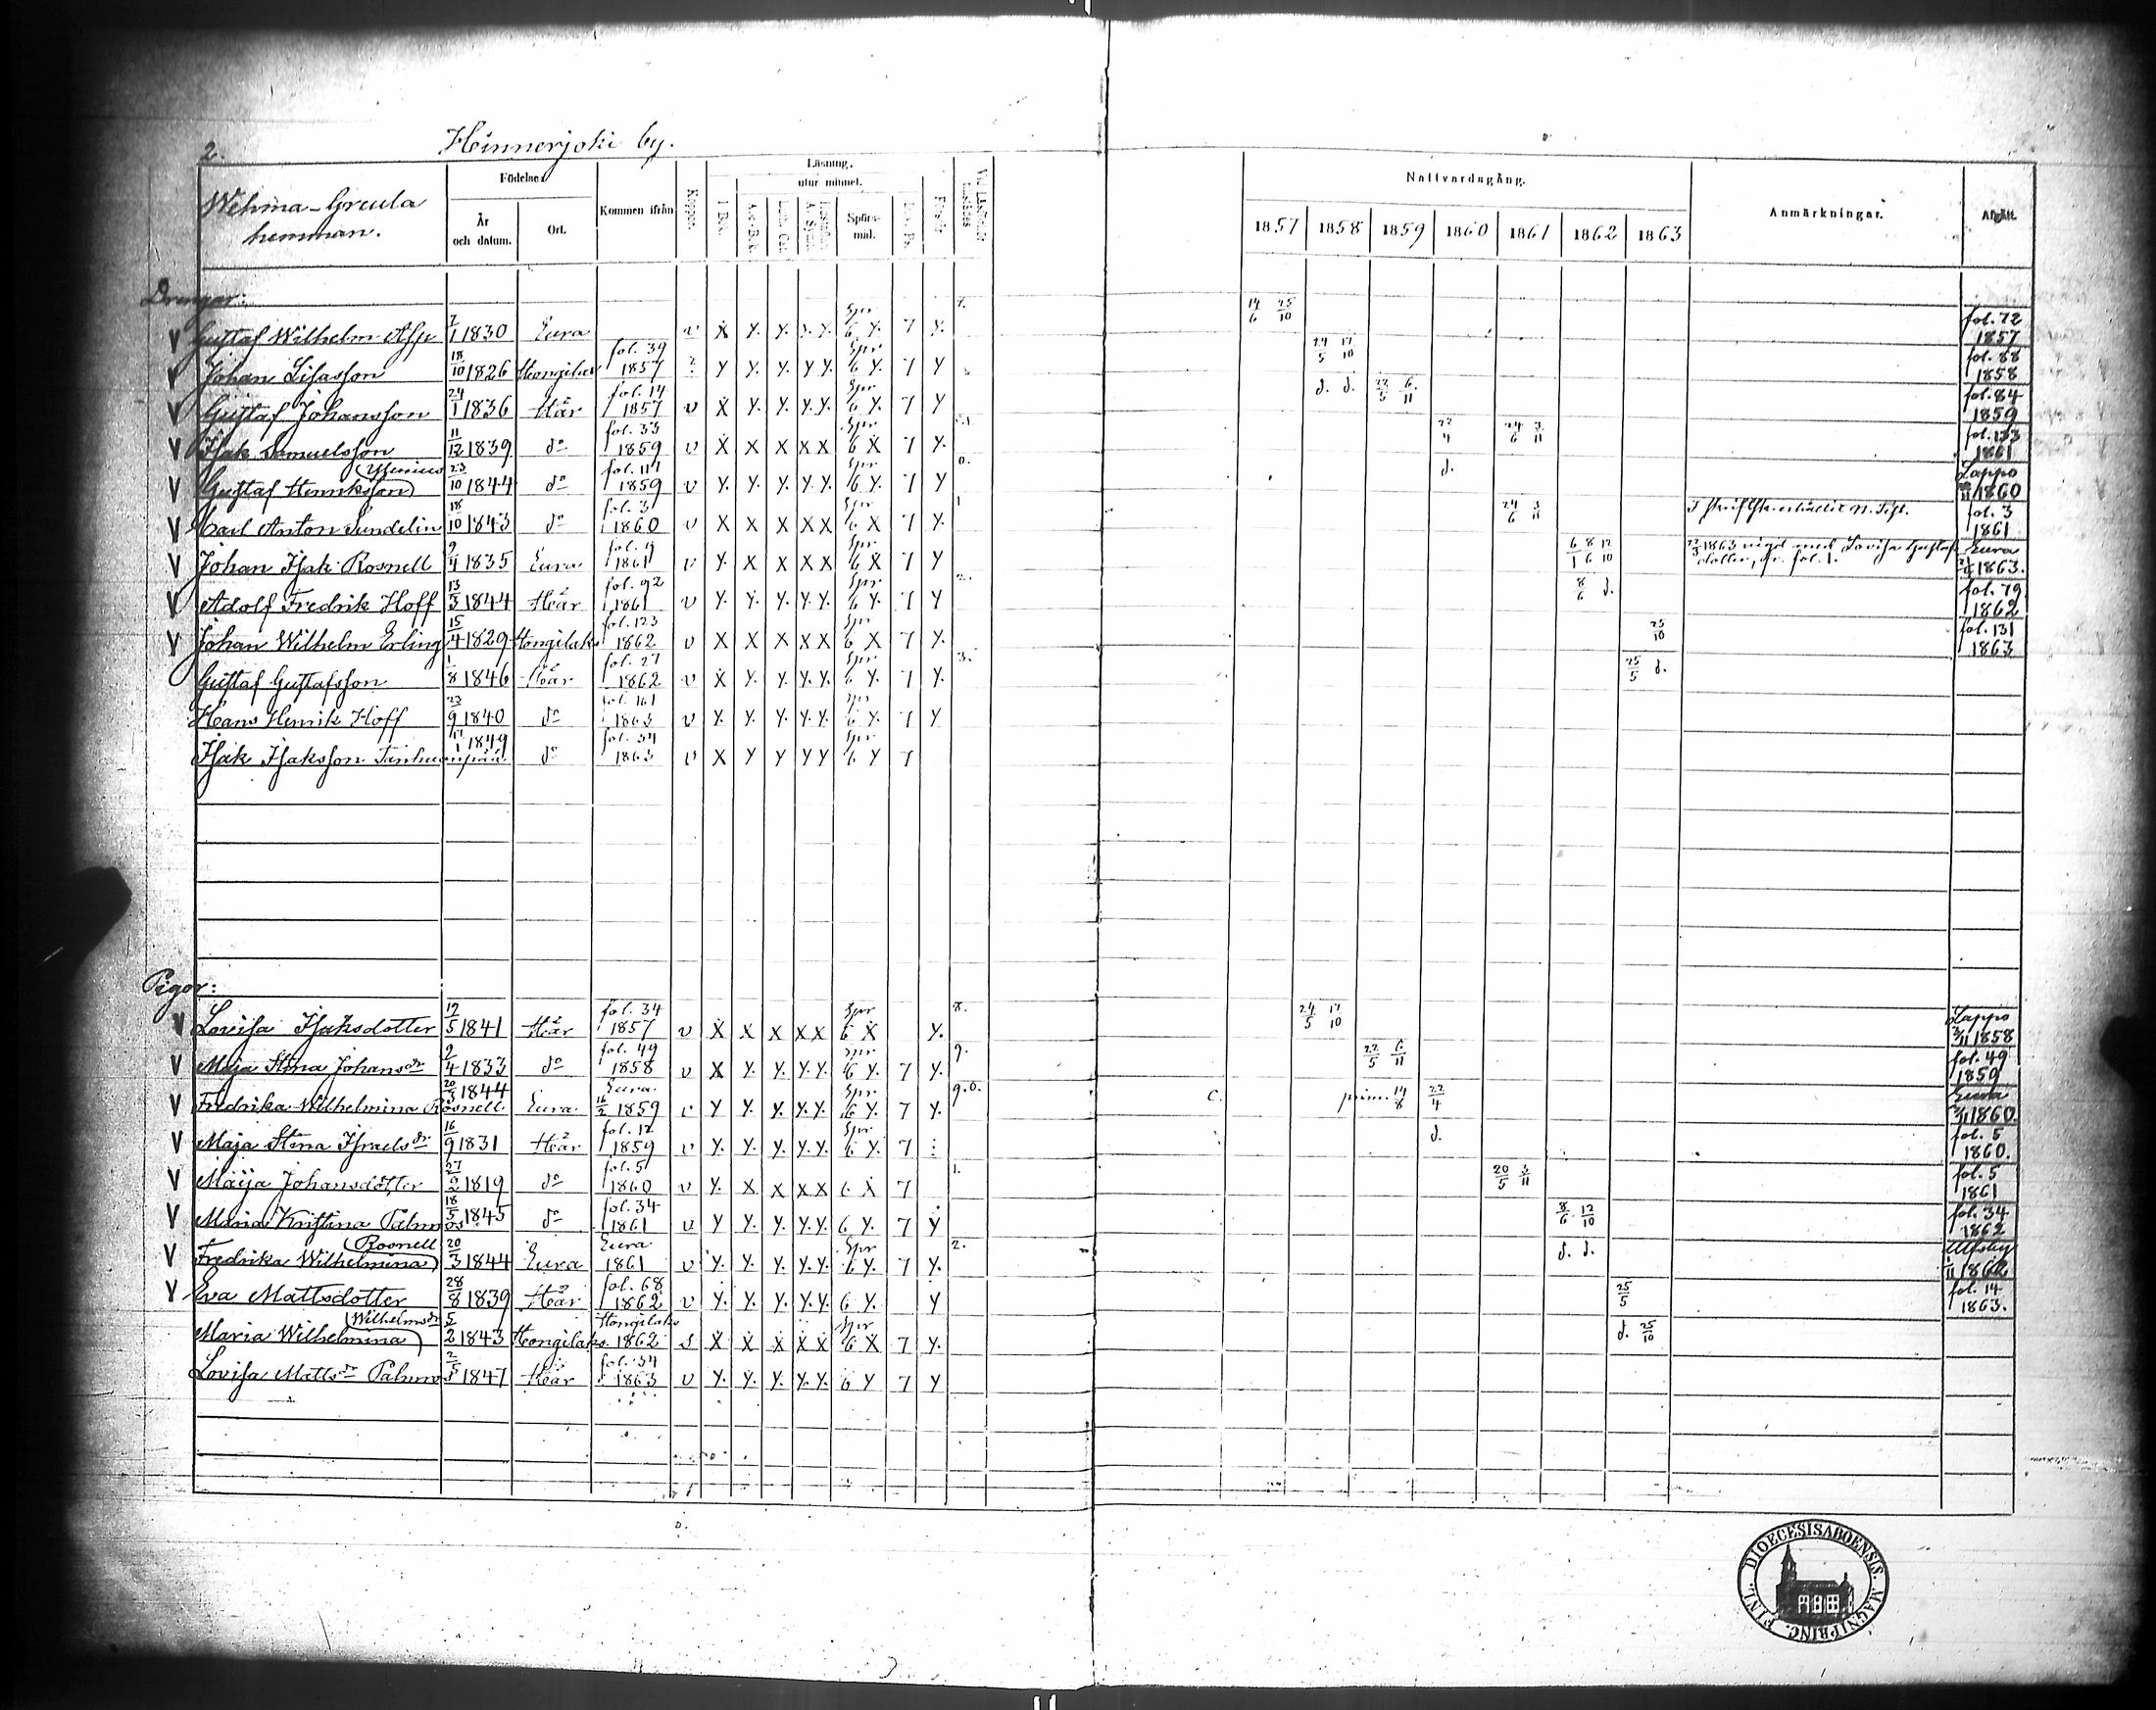 2.
Hinnerjoki by.
Wehma-Greula hemman.
Födelse
År och datum.
Ort.
Kommen ifrån
Koppor.
Läsning.
utur minnet.
I Bok.
Spörs-mål.
Förstår
Nattvardsgång.
1857 1858 1859 1860 1861 1862 1863
Anmärkningar.
Afgått.
Drengar:
Gustaf Wilhelm 1830 Eura v X y. y. y. y. Spr 6 y. 7 y. 14/6 25/10 fol. 72 1857
Johan 18/10 1826 fol. 39 1857 y y. y. y y. Spr 6 y. 7 y 24/5 17/10 fol. 88 1858
Gustaf Johansson 24/1 1836 Här fol. 14 1857 v X y. y. y. y. Spr 6 y. 7 y d. d. 22/5 6/11 fol. 84 1859
Isak Samuelsson 11/12 1839 do fol. 33 1859 v X X X X X Spr 6 X 7 y. 22/4 24/6 3/11 fol. 133 1861
Gustaf Henriksson 23/10 1844 do 1859 v y. y. y. y. y. Spr 6 y. 7 y 0. d. Lappo 1860
Carl Anton Sundelin 18/10 1843 do fol. 3 1860 v X X X X X Spr 6 X 7 y. 1 24/6 3/11 fol. 3 1861
Johan Isak Rosnell 9/4 1835 Eura 1861 v y. X X X X Spr 6 X 7 y 6/1 8/6 12/10 1863 vigd med Lovisa Gustafsdotter, fol. 1. Eura 1863.
Adolf Fredrik Hoff 13/3 1844 Här fol. 92 1861 v y. y. y. y. y. Spr 6 y. 7 y 2. 8/6 d. fol. 79 1862
Johan Wilhelm Erling 15/4 1829 Hongilaks fol. 123 1862 v X X X X X Spr 6 X 7 y. 25/10 fol. 131 1863
Gustaf Gustafsson 1/8 1846 Här fol. 27 1862 v X y. y. y. y. Spr 6 y. 7 y. 3. 25/5 d.
Hans Henrik Hoff 23/9 1840 do fol. 161 1863 v y. y. y. y. y. Spr 6 y. 7 y
Isak Isaksson Tanhuanpää 17/1 1849 do fol. 34 1863 v X y y y y Spr 6 y 7
Pigor:
Lovisa Isaksdotter 12/5 1841 Här fol. 34 1857 v X X X X X Spr 6 X y. 8. 24/5 17/10 Lappo 1858
Maja Stina Johansdr 9/4 1833 do fol. 49 1858 v X y. y. y. y. Spr 6 y. 7 y. 9. 22/5 6/11 fol. 49 1859
Fredrika Wilhelmina Rosnell 20/3 1844 Eura Eura 16/2 1859 v y y. y. y. y. Spr 6 y. 7 y. 9.0. C. 14/8 22/4 Eura 1860.
Maja Stina Israelsdr 16/9 1831 Här fol. 12 1859 v y. y. y. y. y. Spr 6 y. 7 d. fol. 5 1860.
Maija Johansdotter 27/2 1819 do fol. 5 1860 v y. X X X X 6 X 7 1. 20/5 3/11 fol. 5 1861
Maria Kristina Palmros 18/5 1845 do fol. 34 1861 v y y. y. y. y. 6 y. 7 y 8/6 12/10 fol. 34 1862
Fredrika Wilhelmina Rosnell 20/3 1844 Eura Eura 1861 v y. y. y. y. y. Spr 6 y. 7 y. 2. d. d. Ulfsby 1862
Eva Mattsdotter 28/8 1839 Här fol. 68 1862 v y. y. y. y. y. 6 y. y 25/5 fol. 14 1863.
Maria Wilhelmina Wilhelmsdr 5/2 1843 Hongilaks Hongilaks 1862 s X X X X X Spr 6 X 7 y. d. 25/10
Lovisa Mattsdr Palmros 2/5 1847 Här fol. 34 1863 v y. y. y. y. y. 6 y 7 y
FINL. DIOECESIS ABOENSIS. MAGNI PRINC.